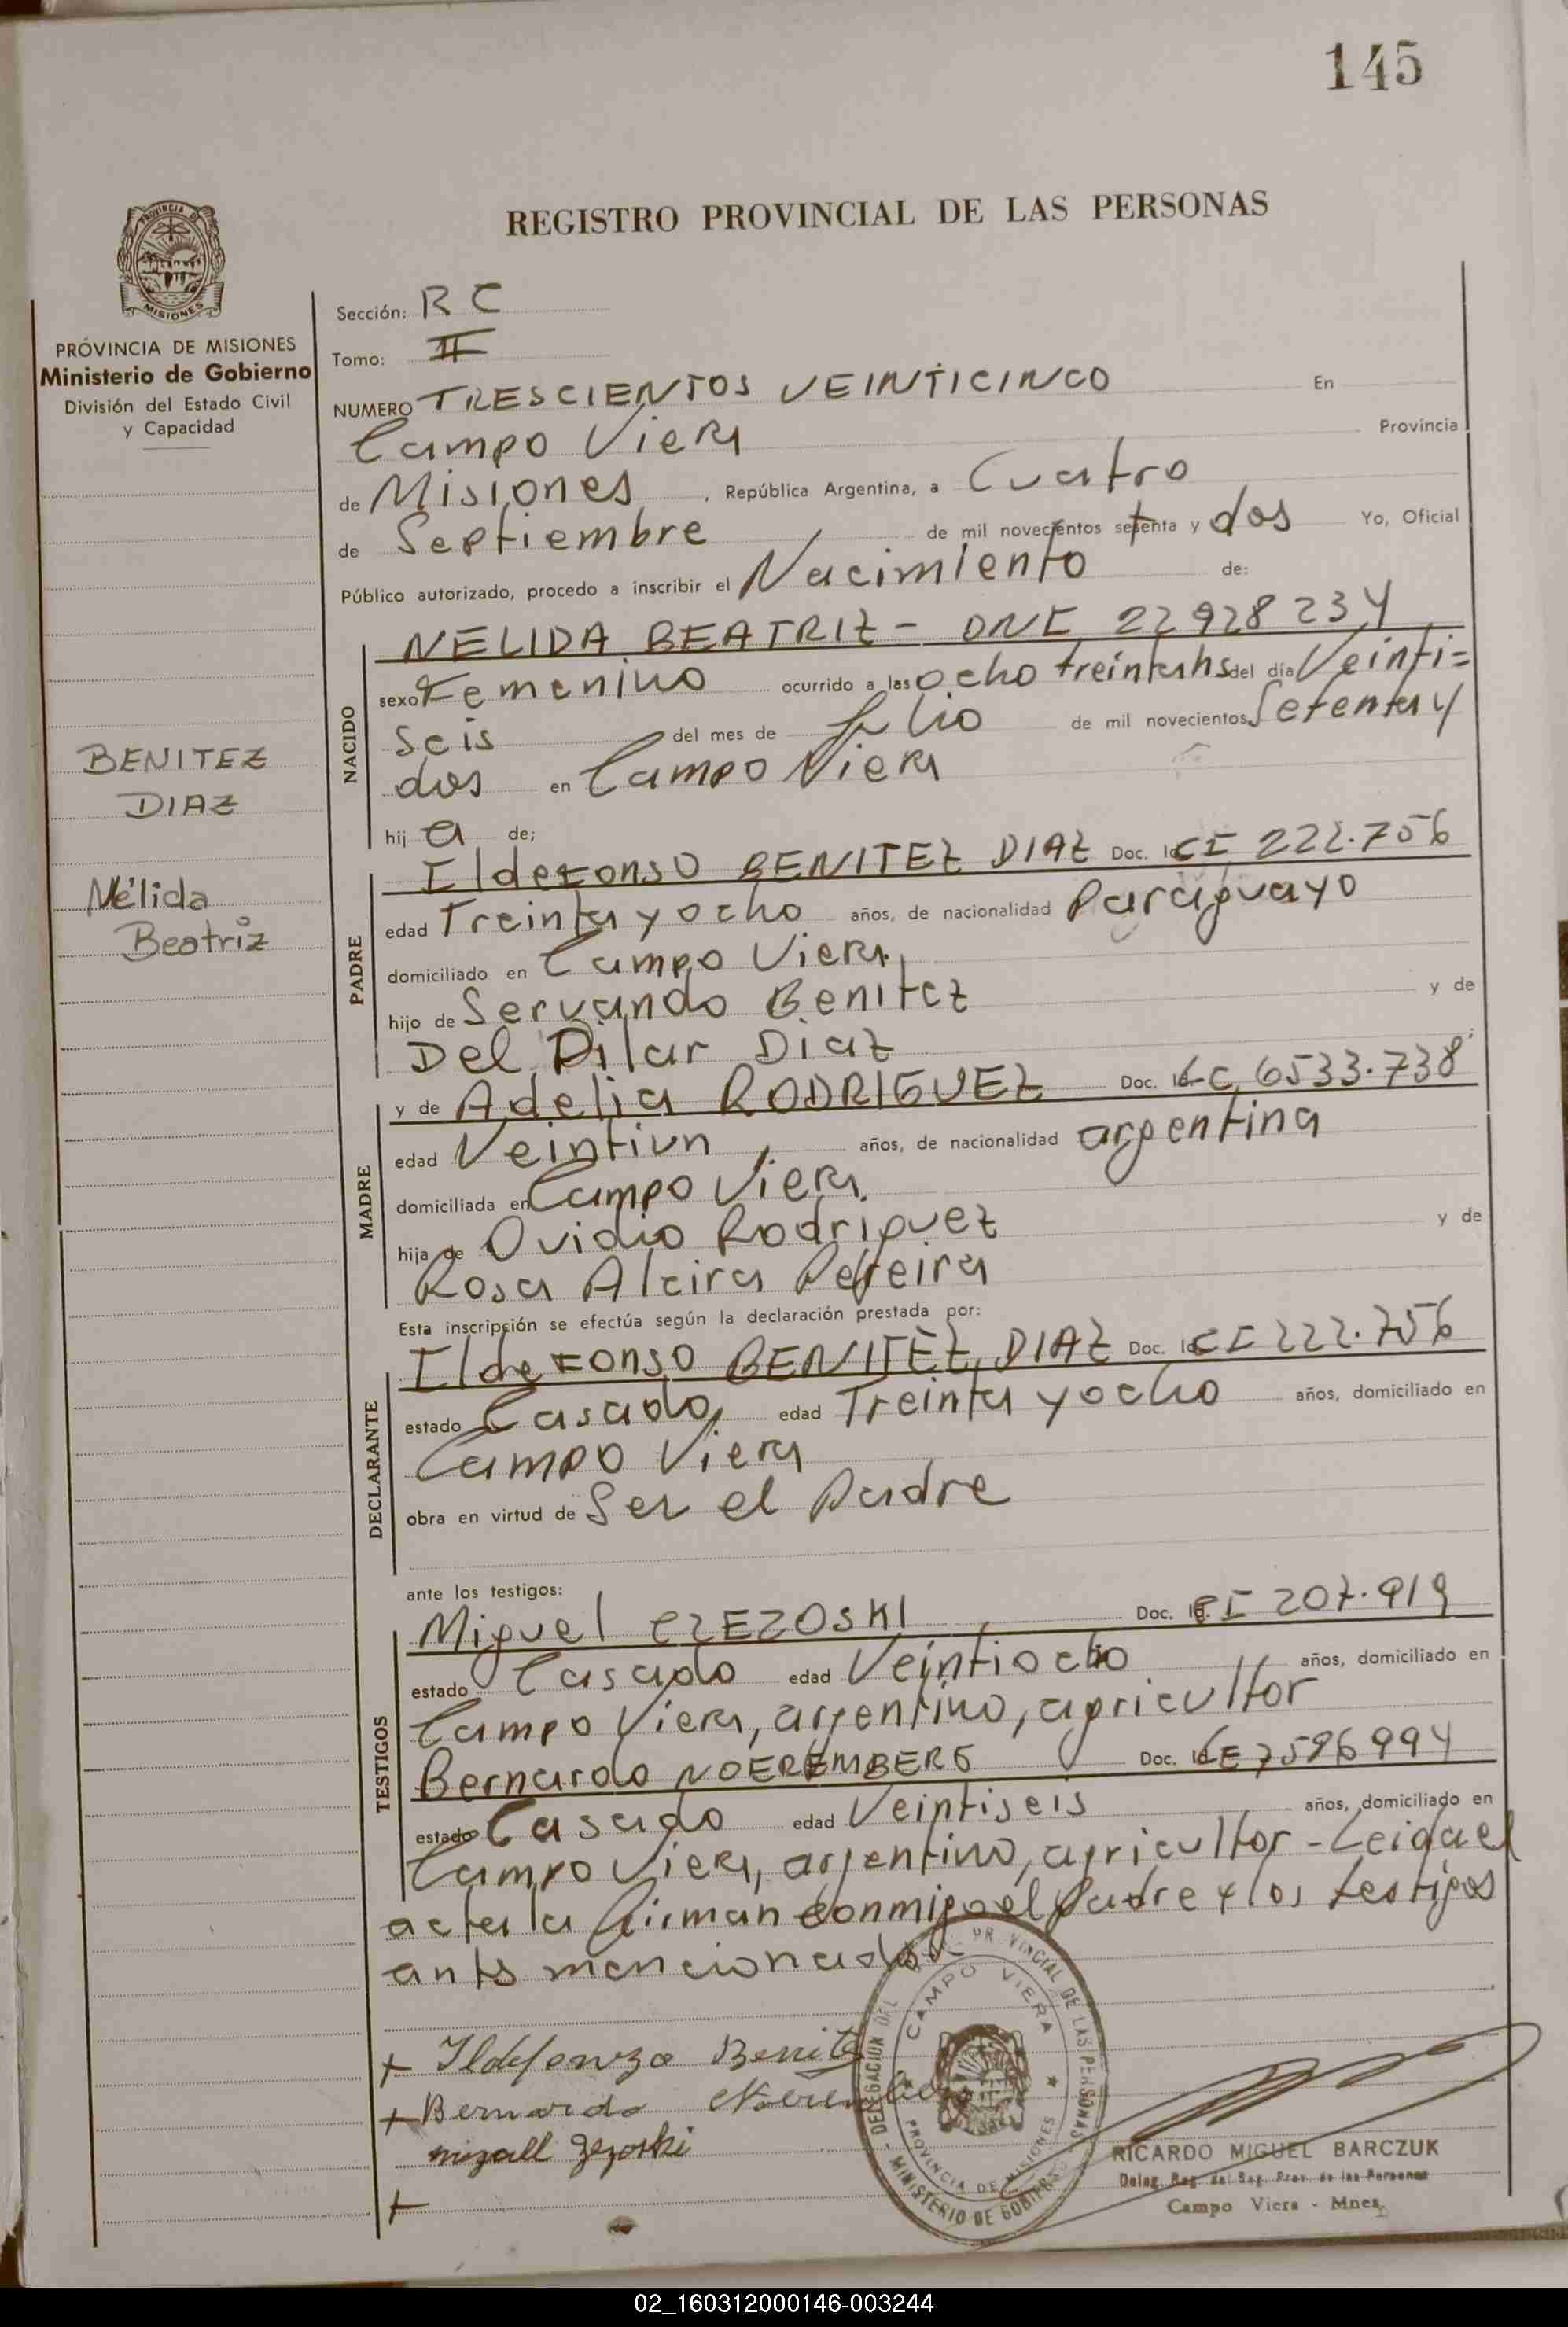 145
REGISTRO PROVINCIAL DE LAS PERSONAS
PROVINCIA DE MISIONES
PROVINCIA DE MISIONES
Ministerio de Gobierno
División del Estado Civil
y Capacidad
BENITEZ
DIAZ
Nélida
Beatriz
Sección: R C
Tomo: II
NUMERO TRESCIENTOS VEINTICINCO En
Campo Viera Provincia
de Misiones, República Argentina, a Cuatro
de Septiembre de mil novecientos setenta y dos Yo, Oficial
Público autorizado, procedo a inscribir el Nacimiento de:
NACIDO
NELIDA BEATRIZ - DNI 22928234
sexo Femenino ocurrido a las ocho treinta hs del día Veinti=
seis del mes de Julio de mil novecientos Setenta y
dos en Campo Viera
hij a de;
PADRE
Ildefonso BENITEZ DIAZ Doc. Id. CI 222.756
edad Treinta y ocho años, de nacionalidad Paraguayo
domiciliado en Campo Viera
hijo de Servando Benitez y de
Del Pilar Diaz
MADRE
y de Adelia RODRIGUEZ Doc. Id. LC 6533.738
edad Veintiun años, de nacionalidad argentina
domiciliada en Campo Viera
hija de Ovidio Rodriguez y de
Rosa Alcira Pereira
Esta inscripción se efectúa según la declaración prestada por:
DECLARANTE
Ildefonso BENITEZ DIAZ Doc. Id. CI 222.756
estado Casado edad Treinta y ocho años, domiciliado en
Campo Viera
obra en virtud de Ser el Padre
ante los testigos:
TESTIGOS
Miguel CZEZOSKI Doc. Id. CI 207.919
estado Casado edad Veintiocho años, domiciliado en
Campo Viera, argentino, agricultor
Bernardo NOEREMBERG Doc. Id. LE 7596994
estado Casado edad Veintiseis años, domiciliado en
Campo Viera, argentino, agricultor - Leida el
acta la firman conmigo el padre y los testigos
ants mencionados
+ Ildefonzo Benitez
+ Bernardo Noeremberg
+
DELEGACION DEL PROVINCIAL DE LAS PERSONAS
CAMPO VIERA
PROVINCIA DE MISIONES
MINISTERIO DE GOBIERNO
RICARDO MIGUEL BARCZUK
Deleg. Reg. del Reg. Prov. de las Personas
Campo Viera - Mnes.
02_160312000146-003244